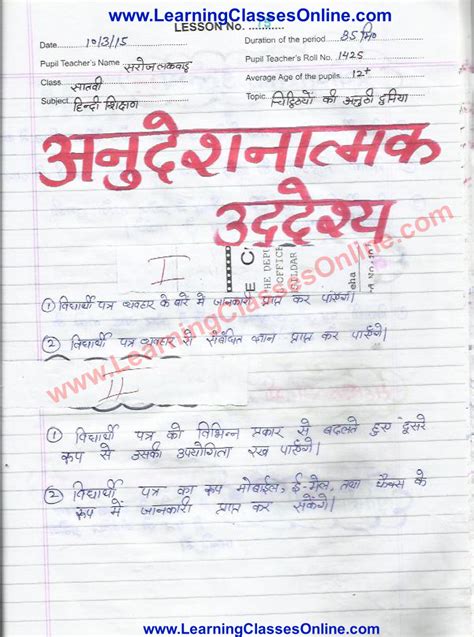 www.LearningClassesOnline.com
LESSON No.
Date 10/3/15 Duration of the period 35 मि०
Pupil Teacher's Name सरोज लकवाड़ Pupil Teacher's Roll No. 1425
Class सातवीं Average Age of the pupils 12+
Subject हिन्दी शिक्षण Topic चिट्ठियों की अनुठी दुनिया
अनुदेशनात्मक
उद्देश्य
I
① विद्यार्थी पत्र व्यवहार के बारे में जानकारी प्राप्त कर पाएंगे।
② विद्यार्थी पत्र व्यवहार से संबंधित ज्ञान प्राप्त कर पाएंगे।
www.LearningClassesOnline.com
II
① विद्यार्थी पत्र को विभिन्न प्रकार से बदलते हुए दूसरे
रूप से उसकी उपयोगिता रख पाएंगे।
② विद्यार्थी पत्र का रूप मोबाईल, ई-मेल, तथा फैक्स के
रूप में जानकारी प्राप्त कर सकेंगे।
www.LearningClassesOnline.com